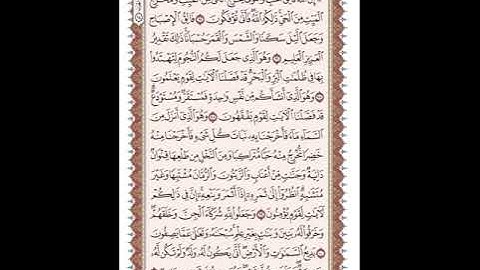 ٱلْمَيِّتِ مِنَ ٱلْحَيِّ ذَٰلِكُمُ ٱللَّهُ فَأَنَّىٰ تُؤْفَكُونَ ۝ فَالِقُ ٱلْإِصْبَاحِ
وَجَعَلَ ٱلَّيْلَ سَكَنًا وَٱلشَّمْسَ وَٱلْقَمَرَ حُسْبَانًا ذَٰلِكَ تَقْدِيرُ
ٱلْعَزِيزِ ٱلْعَلِيمِ ۝ وَهُوَ ٱلَّذِي جَعَلَ لَكُمُ ٱلنُّجُومَ لِتَهْتَدُوا۟
بِهَا فِي ظُلُمَٰتِ ٱلْبَرِّ وَٱلْبَحْرِ قَدْ فَصَّلْنَا ٱلْءَايَٰتِ لِقَوْمٍ يَعْلَمُونَ
۝ وَهُوَ ٱلَّذِيٓ أَنشَأَكُم مِّن نَّفْسٍ وَٰحِدَةٍ فَمُسْتَقَرٌّ وَمُسْتَوْدَعٌ
قَدْ فَصَّلْنَا ٱلْءَايَٰتِ لِقَوْمٍ يَفْقَهُونَ ۝ وَهُوَ ٱلَّذِيٓ أَنزَلَ مِنَ
ٱلسَّمَآءِ مَآءً فَأَخْرَجْنَا بِهِۦ نَبَاتَ كُلِّ شَيْءٍ فَأَخْرَجْنَا مِنْهُ
خَضِرًا نُّخْرِجُ مِنْهُ حَبًّا مُّتَرَاكِبًا وَمِنَ ٱلنَّخْلِ مِن طَلْعِهَا قِنْوَانٌ
دَانِيَةٌ وَجَنَّٰتٍ مِّنْ أَعْنَابٍ وَٱلزَّيْتُونَ وَٱلرُّمَّانَ مُشْتَبِهًا وَغَيْرَ
مُتَشَٰبِهٍ ٱنظُرُوٓا۟ إِلَىٰ ثَمَرِهِۦٓ إِذَآ أَثْمَرَ وَيَنْعِهِۦٓ إِنَّ فِي ذَٰلِكُمْ
لَءَايَٰتٍ لِّقَوْمٍ يُؤْمِنُونَ ۝ وَجَعَلُوا۟ لِلَّهِ شُرَكَآءَ ٱلْجِنَّ وَخَلَقَهُمْ
وَخَرَقُوا۟ لَهُۥ بَنِينَ وَبَنَٰتٍ بِغَيْرِ عِلْمٍ سُبْحَٰنَهُۥ وَتَعَٰلَىٰ عَمَّا يَصِفُونَ
۝ بَدِيعُ ٱلسَّمَٰوَٰتِ وَٱلْأَرْضِ أَنَّىٰ يَكُونُ لَهُۥ وَلَدٌ وَلَمْ تَكُن لَّهُۥ